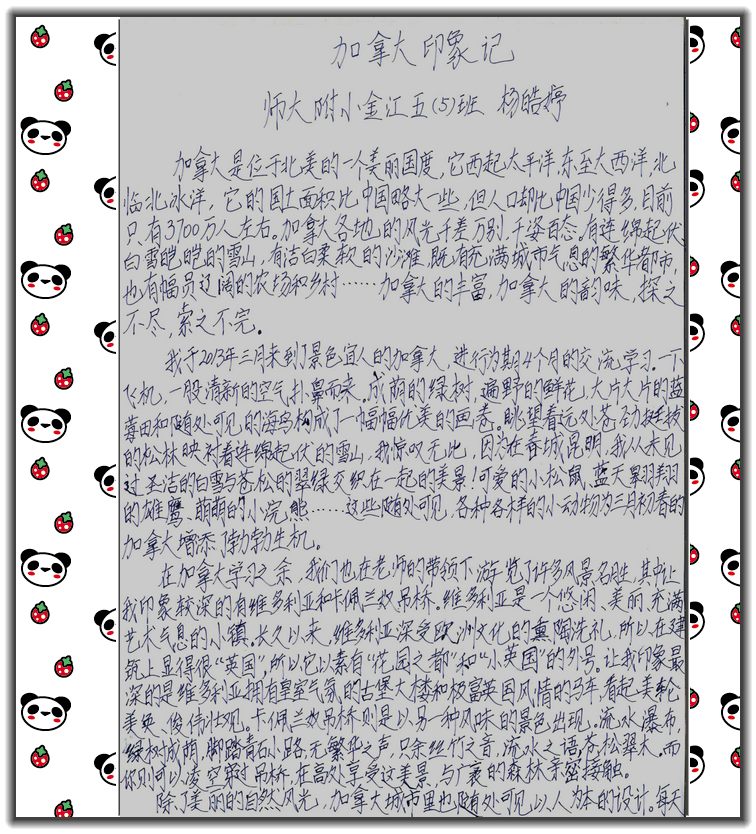 加拿大印象记
师大附小金江五(5)班 杨皓婷
加拿大是位于北美的一个美丽国度,它西起太平洋,东至大西洋,北
临北冰洋,它的国土面积比中国略大一些,但人口却比中国少得多,目前
只有3700万人左右。加拿大各地的风光千差万别,千姿百态。有连绵起伏
白雪皑皑的雪山,有洁白柔软的沙滩,既有充满城市气息的繁华都市,
也有幅员辽阔的农场和乡村……加拿大的丰富,加拿大的韵味,探之
不尽,索之不完。
我于2013年三月来到了景色宜人的加拿大,进行为期4个月的交流学习。一下
飞机,一股清新的空气扑鼻而来。成荫的绿树,遍野的鲜花,大片大片的蓝
莓田和随处可见的海鸟构成了一幅幅优美的画卷。眺望着远处苍劲挺拔
的松林映衬着连绵起伏的雪山,我惊叹无比,因为在春城昆明,我从未见
过圣洁的白雪与苍松的翠绿交织在一起的美景!可爱的小松鼠、蓝天翱翔
的雄鹰、萌萌的小浣熊……这些随处可见,各种各样的小动物为三月初春的
加拿大增添了勃勃生机。
在加拿大学习之余,我们也在老师的带领下游览了许多风景名胜,其中让
我印象较深的有维多利亚和卡佩兰奴吊桥。维多利亚是一个悠闲、美丽、充满
艺术气息的小镇。长久以来,维多利亚深受欧洲文化的熏陶洗礼,所以在建
筑上显得很“英国”,所以它以素有“花园之都”和“小英国”的外号。让我印象最
深的是维多利亚拥有皇室气氛的古堡大楼和极富英国风情的马车,看起美轮
美奂、俊伟壮观。卡佩兰奴吊桥则是以另一种风味的景色出现。流水瀑布,
绿树成荫,脚踏青石小路,无繁华之声,只余丝竹之音,流水之语,苍松翠木。而
你则可以凌空穿过吊桥,在高处享受这美景,与广袤的森林亲密接触。
除了美丽的自然风光,加拿大城市里也随处可见以人为本的设计。每天